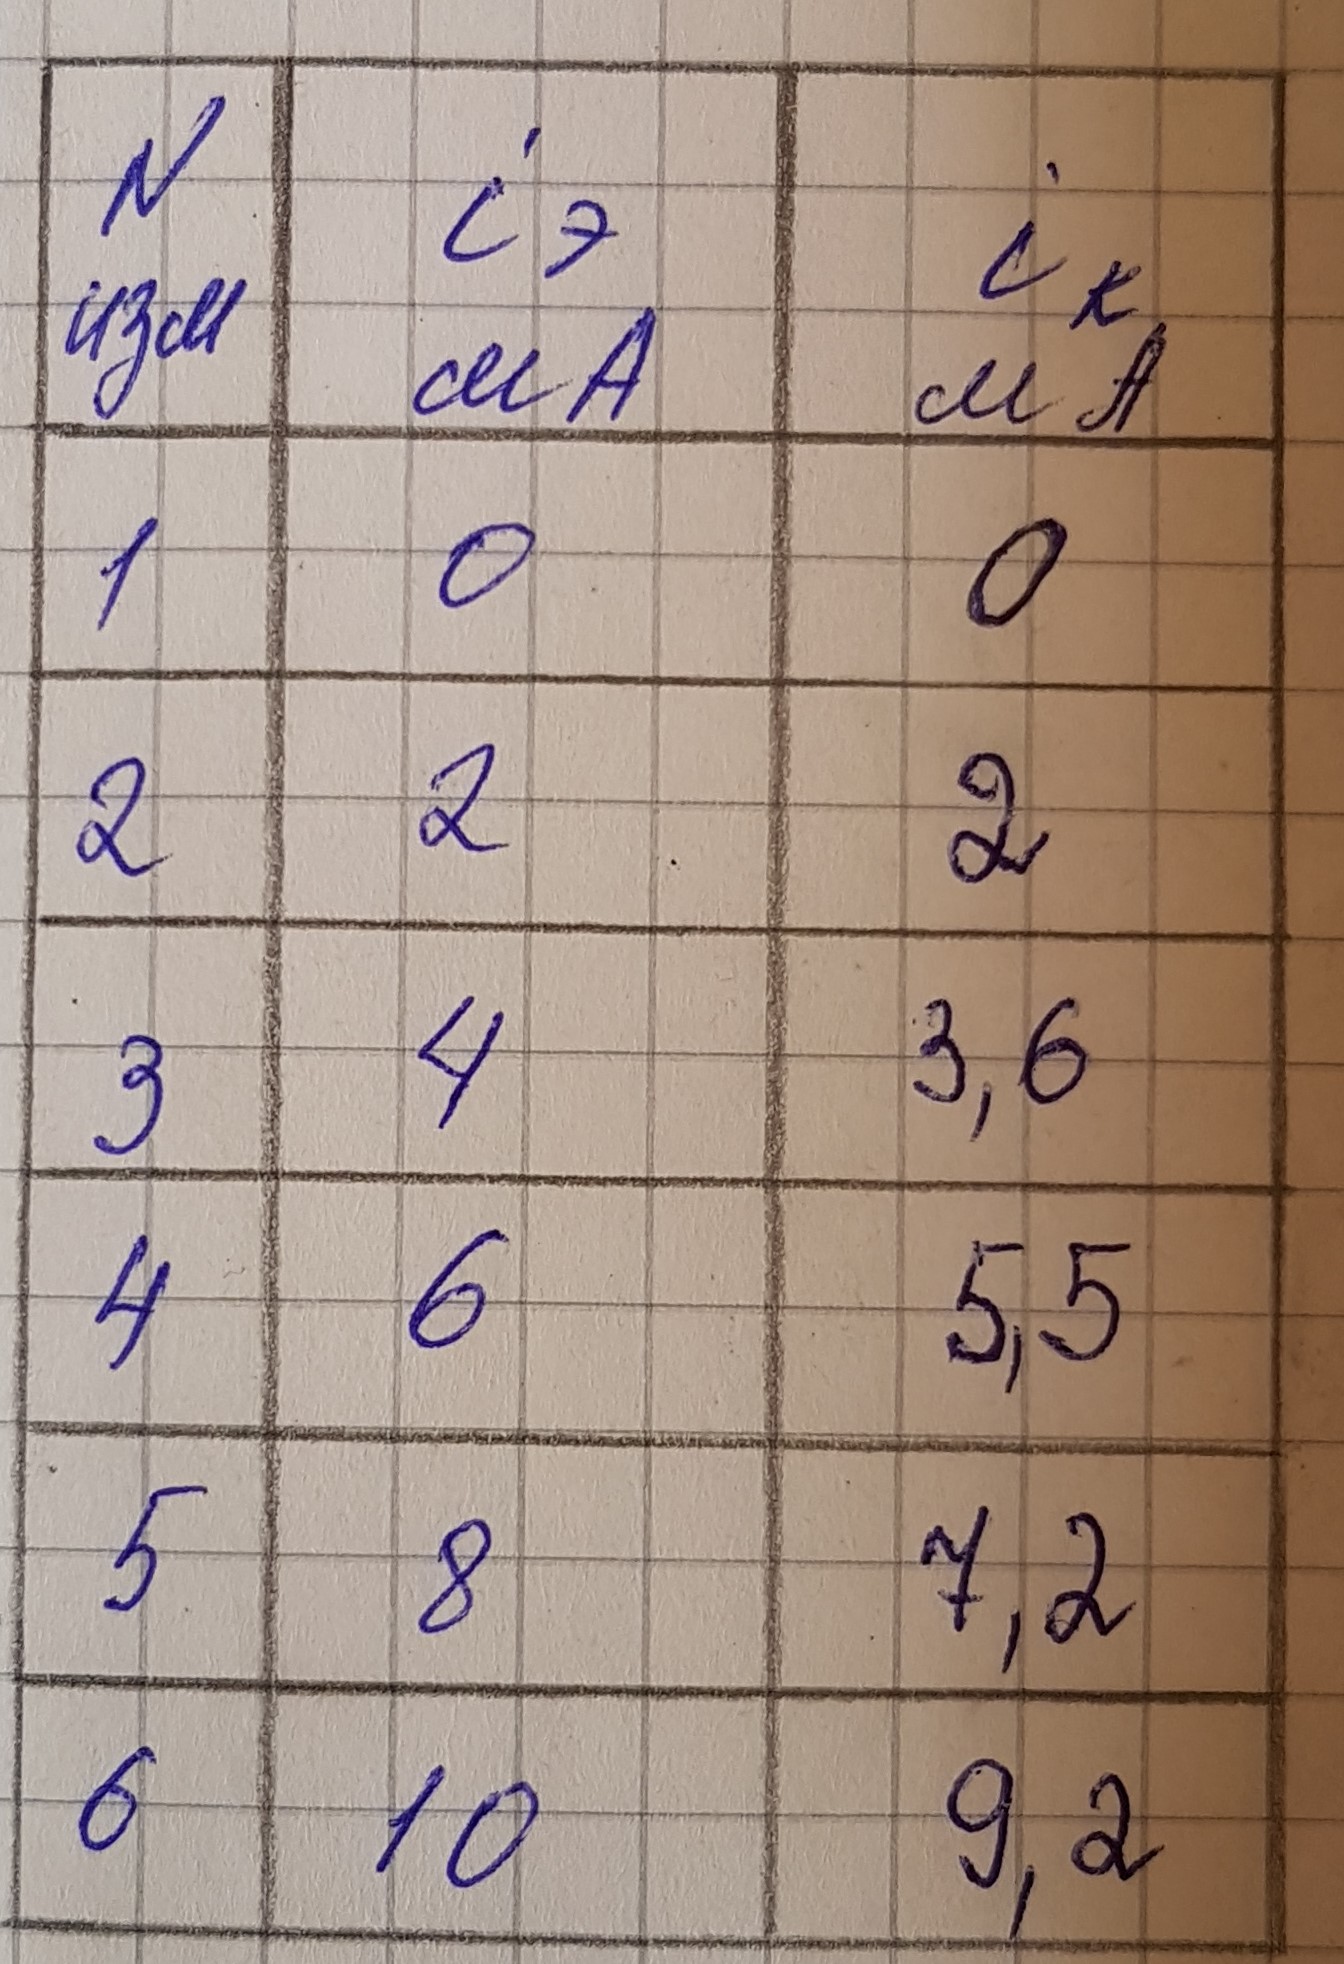 N изм iэ мА iк мА
1 0 0
2 2 2
3 4 3,6
4 6 5,5
5 8 7,2
6 10 9,2